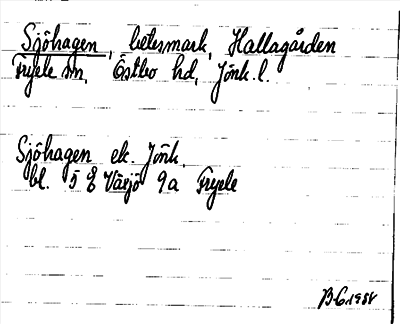 Sjöhagen, betesmark, Hallagården
Fryele sn, Östbo hd, Jönk. l.
Sjöhagen ek. Jönk.
bl. 5 E Växjö 9a Fryele